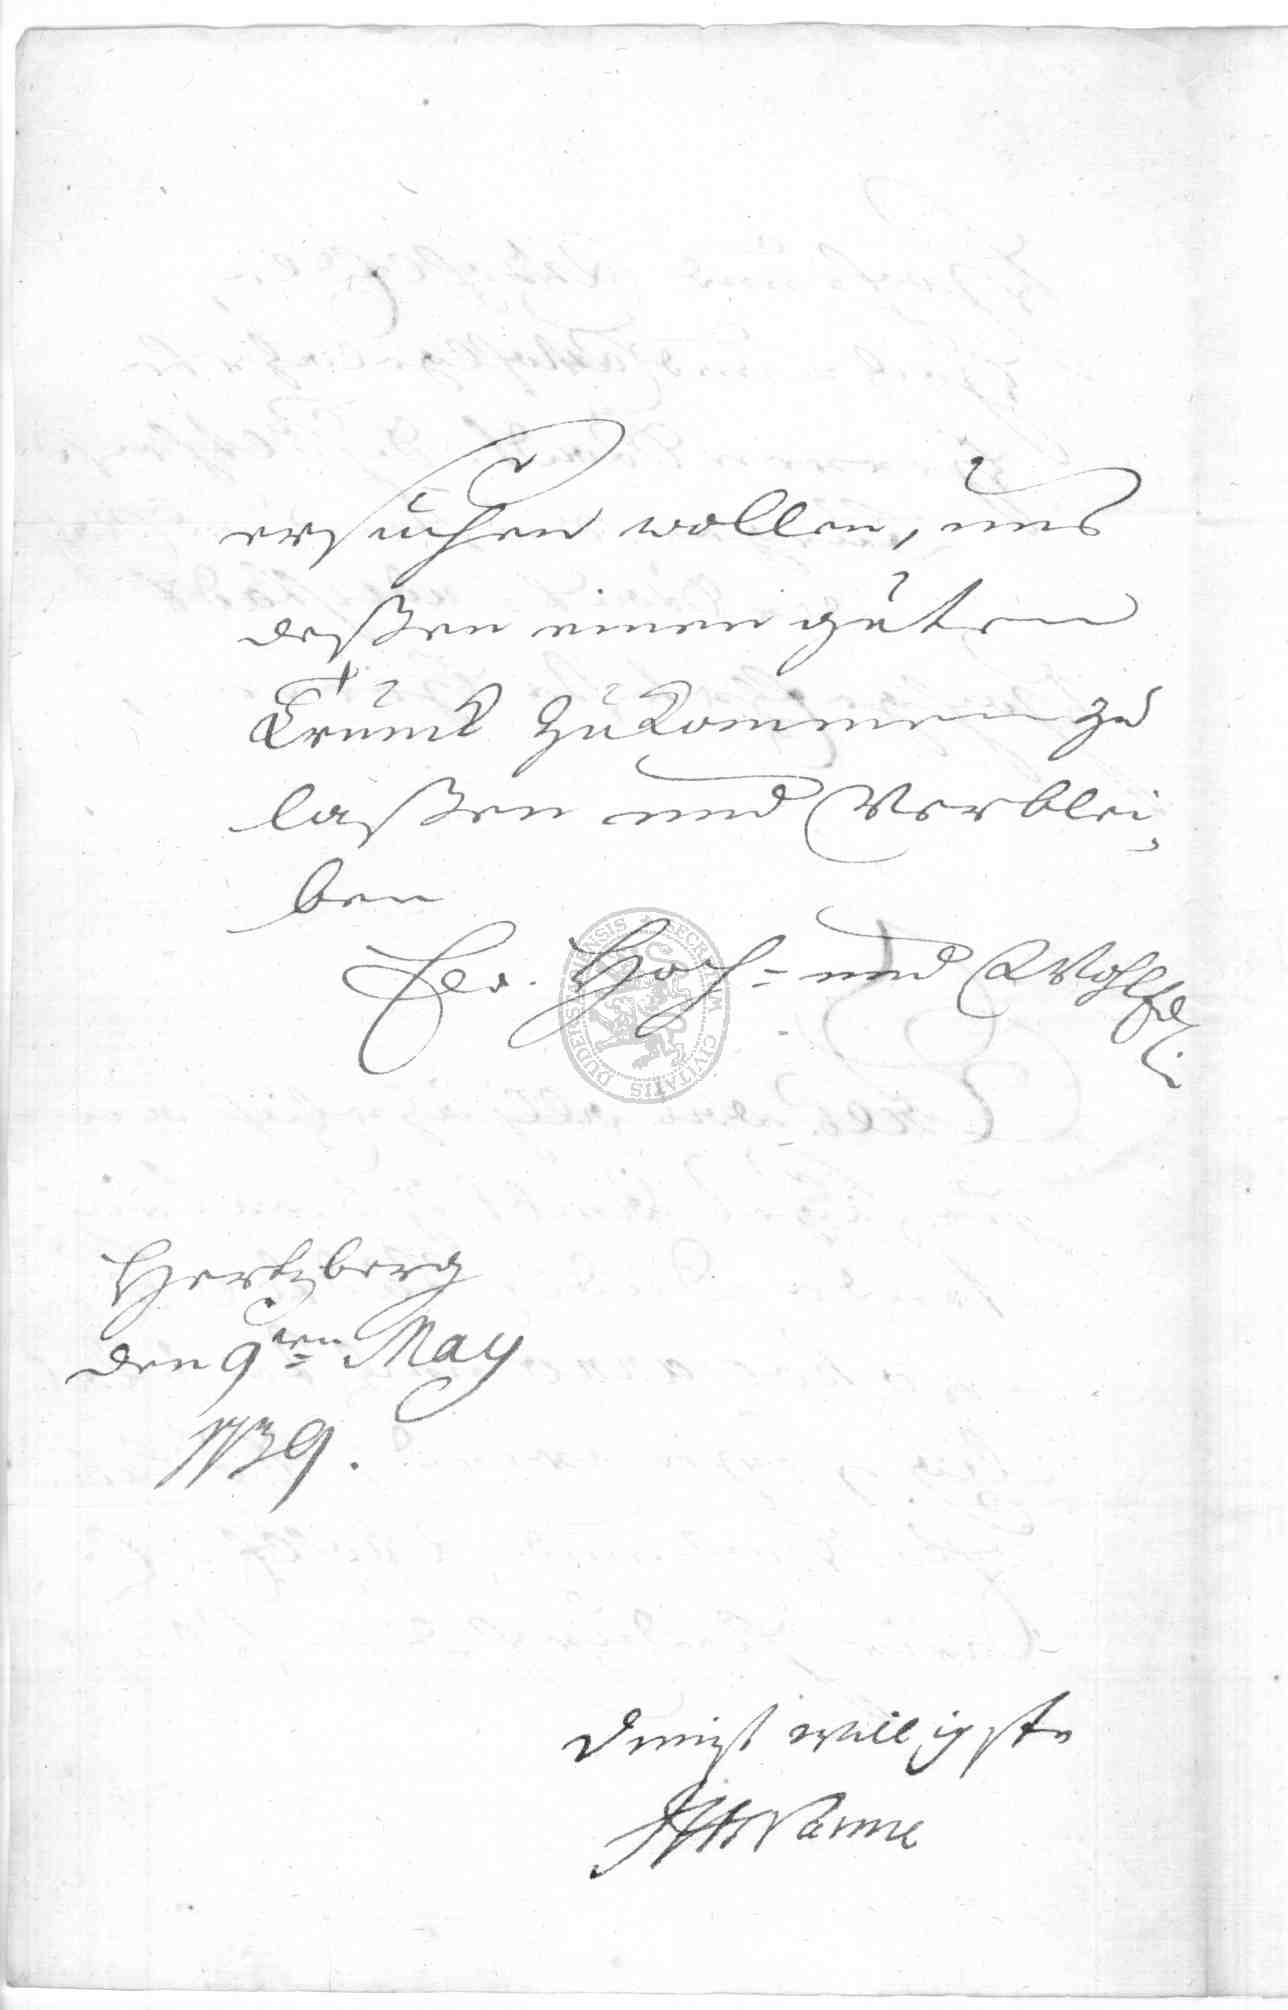 ersuchen wollen, uns
deßen einen guten
Trunck zukommen zu
laßen und Verblei,
ben
Ew. Hoch- und Wohl
Hertzberg
den 9ten May
1739.
dienst willigste
SECRETUM CIVITATIS DUDERSTADENSIS